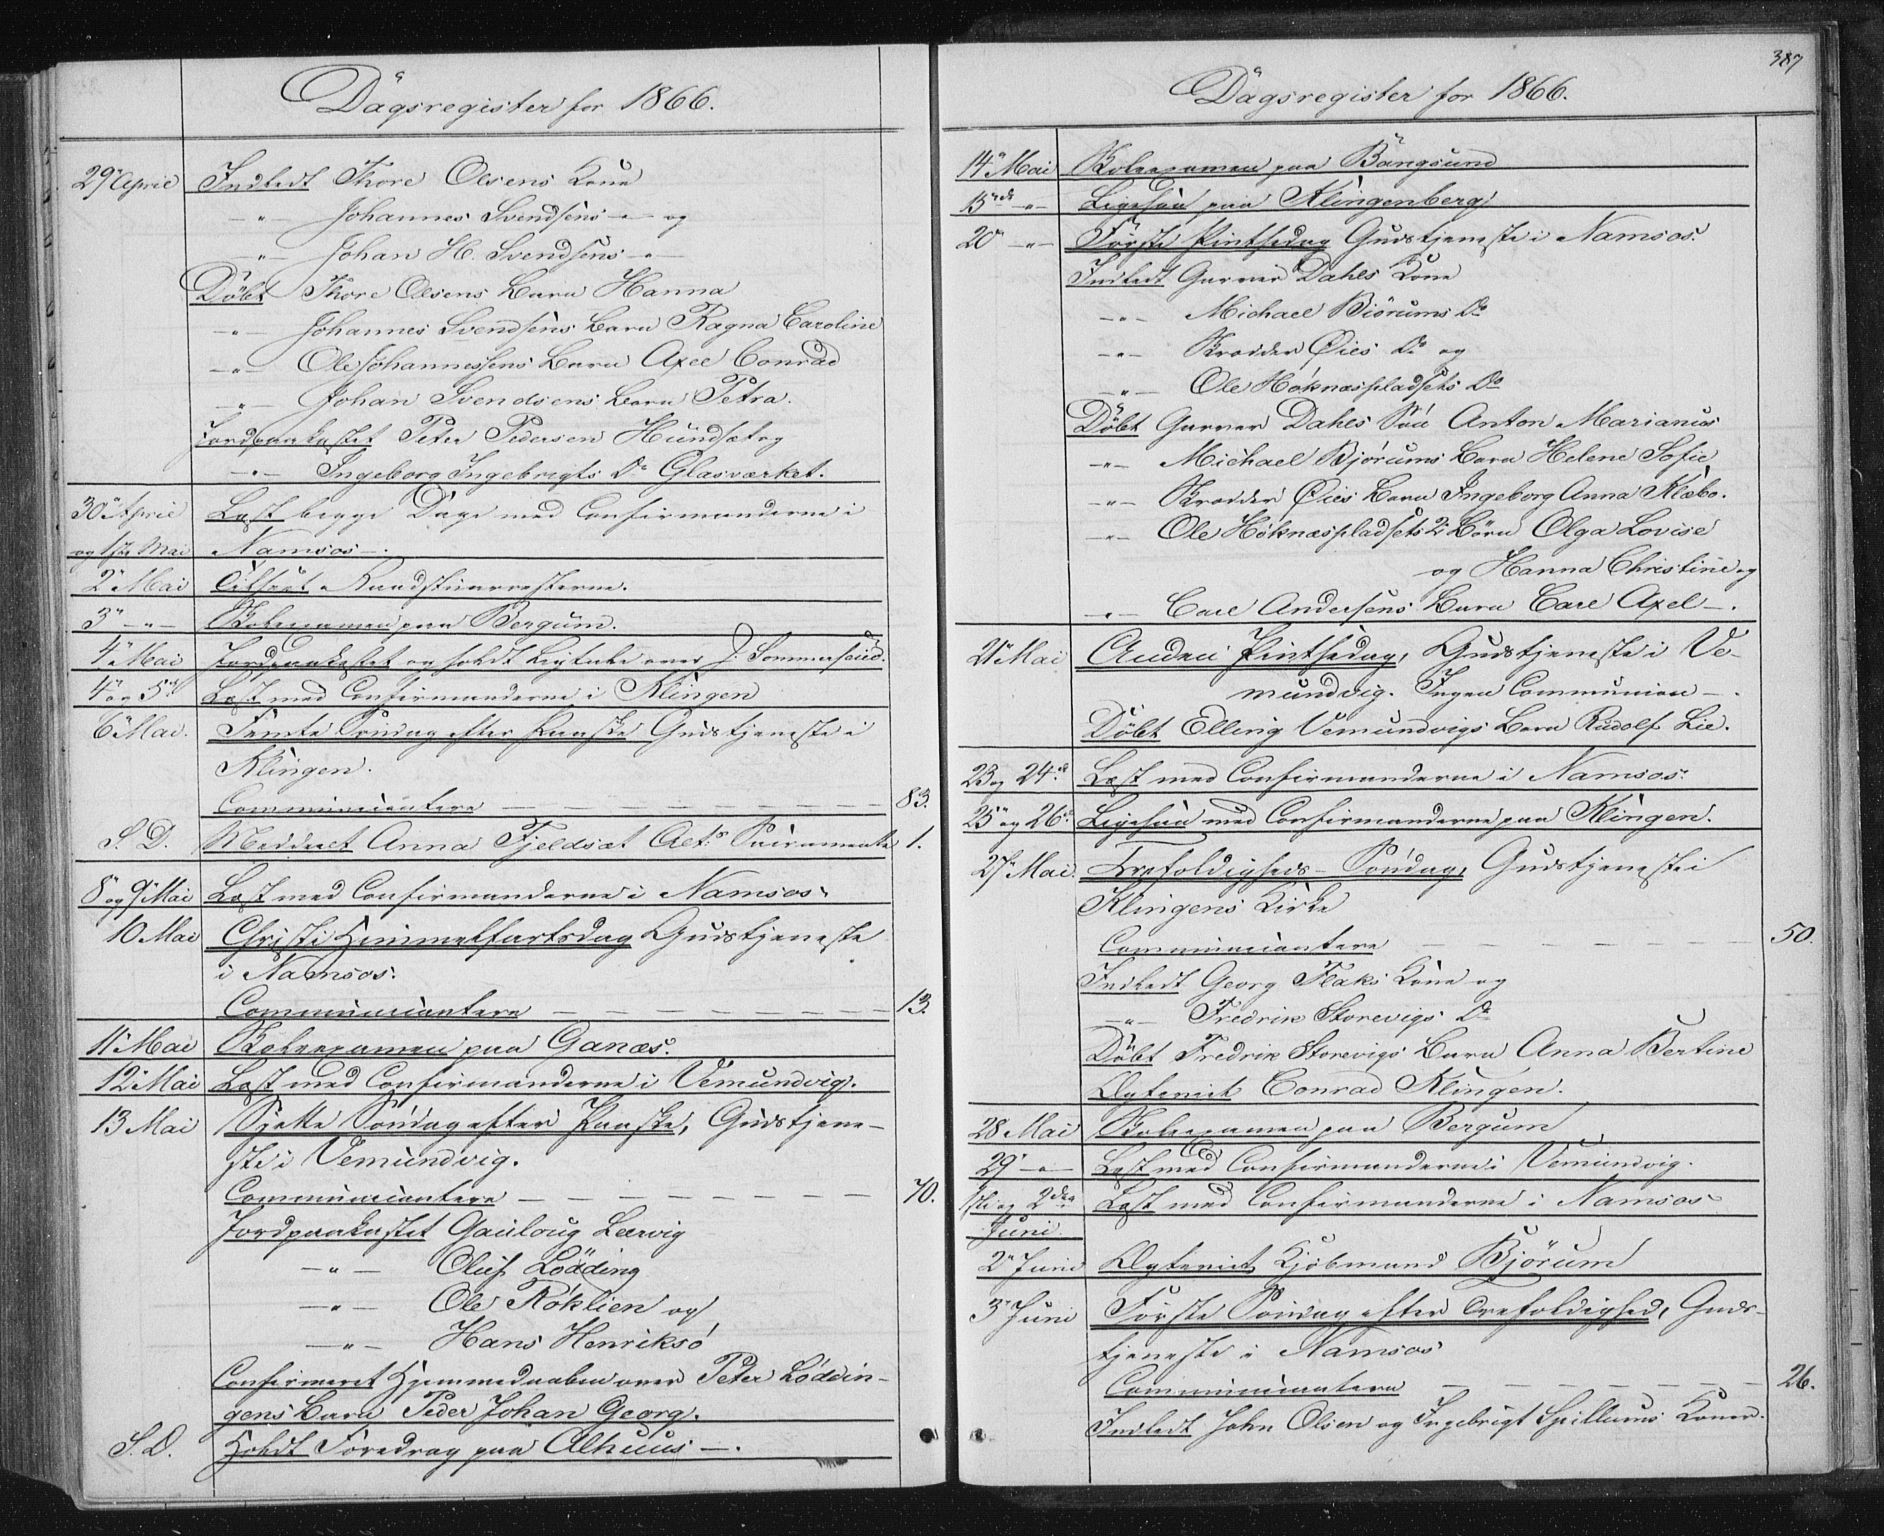 Dagsregister for 1866.
29 April Indledt Thore Olsens Kone
-"- Johannes Svendsens -"- og
-"- Johan H. Svendsens -"-
Döbt Thore Olsens Barn Hanna
-"- Johannes Svendsens Barn Ragna Caroline
-"- Ole Johannessens Barn Axel Conrad
-"- Johan Svendsens Barn Petra.
Jordpaakastet Peter Pedersen Hundsæt og
-"- Ingeborg Ingebrigts Dr Glasværket.
30 April Læst begge Dage med Confirmanderne i
og 1ste Mai Namsos -.
2 Mai Raadstuarresterne.
3 -"- Skoleexamen paa Bergum.
4 Mai Jordpaakastet og holdt Ligtale over J. Sommerseied.
4 og 5te Læst med Confirmanderne i Klingen
6 Mai. Femte Søndag efter Paaske Gudstjeneste i
Klingen.
Communicantere - - - - - - - 83.
S. D. Meddeelt Anna Fjeldsæt Alt. Sacramente 1.
8 og 9 Mai Læst med Confirmanderne i Namsos.
10 Mai Christi Himmelfartsdag Gudstjeneste
i Namsos.
Communicantere - - - - - - - 13.
11 Mai Skoleexamen paa Ganæs.
12 Mai Læst med Confirmanderne i Vemundvig.
13 Mai Sjette Søndag efter Paaske, Gudstjene-
ste i Vemundvig.
Communicantere - - - - - - - 70.
Jordpaakastet Gauloug Lervig
-"- Oluf Lödding
-"- Ole Röklien og
-"- Hans Henriksö
Confirmeret Hjemmedaaben over Peter Löddin-
gens Barn Peder Johan Georg.
S. D. Holdt Foredrag paa Alhuus -.
387
Dagsregister for 1866.
14 Mai Skoleexamen paa Bangsund
15de -"- Ligesaa paa Klingenberg
20 -"- Første Pintsedag Gudstjeneste i Namsos.
Indledt Garver Dahls Kone
-"- Michael Biörums Do
-"- Skrædder Øies Do og
-"- Ole Höknæspladsets Do
Döbt Garver Dahls Søn Anton Marianus
-"- Michael Bjørums Barn Helene Sofie
-"- Skrædder Øies Barn Ingeborg Anna Klæbo.
-"- Ole Höknæspladsets 2 Börn Olga Lovise
og Hanna Christine og
-"- Carl Andersens Barn Carl Axel -.
21 Mai Anden Pintsedag, Gudstjeneste i Ve-
mundvig. Ingen Communion -.
Döbt Elling Vemundvigs Barn Rudolf Lie.
23 og 24de Læst med Confirmanderne i Namsos.
25 og 26de Ligesaa med Confirmanderne paa Klingen.
27 Mai. Trefoldigheds-Søndag, Gudstjeneste i
Klingens Kirke
Communicantere - - - - - - - 50.
Indledt Georg Flaks Kone og
-"- Fredrik Storevigs Do
Döbt Fredrik Storevigs Barn Anna Bertine
Ægteviet Conrad Klingen.
28 Mai Skoleexamen paa Bergum
29 -"- Læst med Confirmanderne i Vemundvig.
1ste og 2den Læst med Confirmanderne i Namsos
Juni
2 Juni Ægteviet Kjøbmand Bjørum
3 Juni Første Søndag efter Trefoldighed, Guds-
tjeneste i Namsos
Communicantere - - - - - - - 26.
Indledt John Olsen og Ingebrigt Spillums Koner.